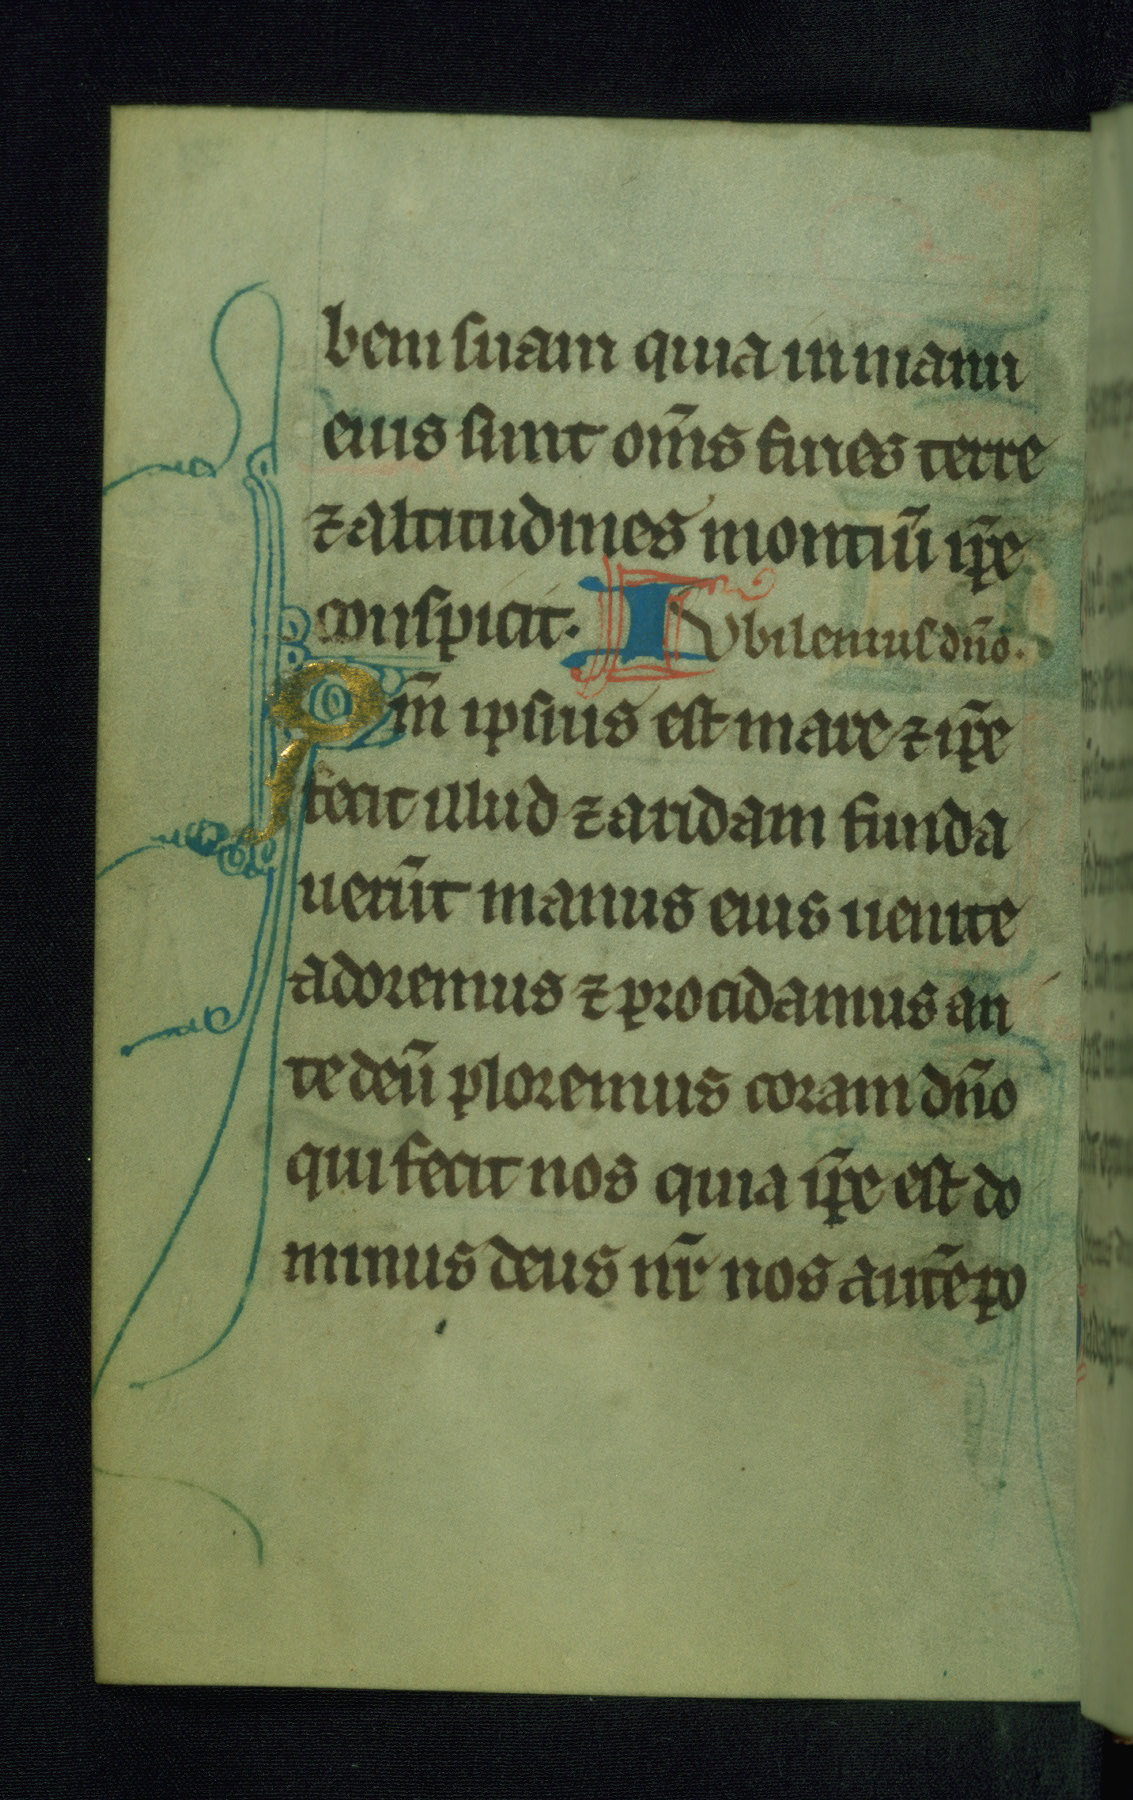 bem suam quia in manu
eius sunt om̄s fines terre
⁊ altitudines montiū ip̄e
conspicit. Iubilemus dn̄o.
Qm̄ ipsius est mare ⁊ ip̄e
fecit illud ⁊ aridam funda
uerūt manus eius uenite
adoremus ⁊ procidamus an
te deū ploremus coram dn̄o
qui fecit nos quia ip̄e est do
minus deus nr̄ nos autē po